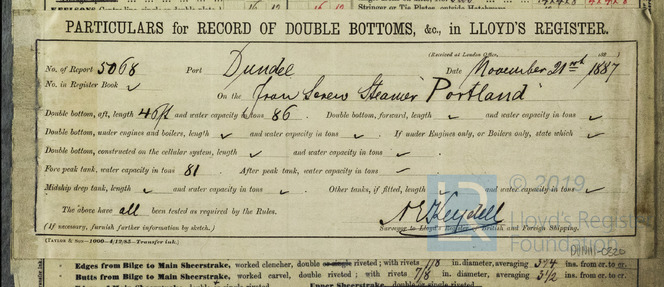 PARTICULARS FOR RECORD OF DOUBLE BOTTOMS, &c., IN LLOYD'S REGISTER.
(Received at London Office, 188 )
No. of Report 5068 Port Dundee Date November 21st 1887
No. in Register Book ✓
On the Iron Screw Steamer "Portland"
Double bottom, aft, length 46ft and water capacity in tons 86. Double bottom, forward, length ✓ and water capacity in tons ✓
Double bottom, under engines and boilers, length ✓ and water capacity in tons ✓. If under Engines only, or Boilers only, state which ✓
Double bottom, constructed on the cellular system, length ✓ and water capacity in tons ✓.
Fore peak tank, water capacity in tons 81. After peak tank, water capacity in tons ✓.
Midship deep tank, length ✓ and water capacity in tons ✓. Other tanks, if fitted, length ✓ and water capacity in tons ✓
The above have all been tested as required by the Rules.
(If necessary, furnish further information by sketch.)
Surveyor to Lloyd's Register of British and Foreign Shipping.
(TAYLOR & SON—1000—4/12/83—Transfer ink.)
© 2019
Lloyd's Register
Foundation
Edges from Bilge to Main Sheerstrake, worked clencher, double riveted; with rivets 7/8 in. diameter, averaging
Butts from Bilge to Main Sheerstrake, worked carvel, double riveted; with rivets 7/8 in. diameter, averaging 3 1/2 ins. from cr. to cr.